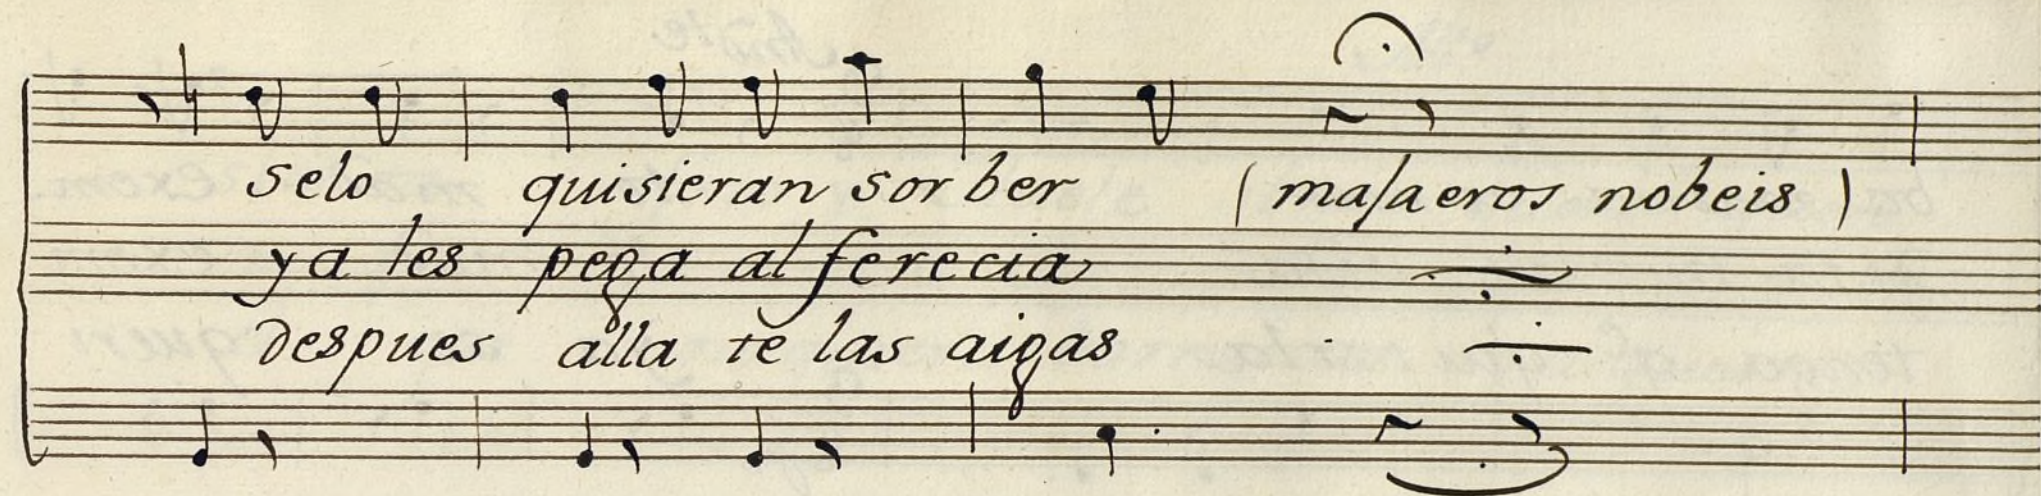 selo quisieran sor ber (masaeros nobeis)
ya les pega alferecia
despues alla te las aigas